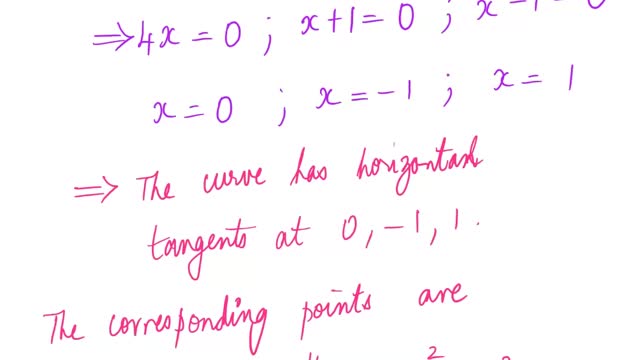 ⟹ 4x = 0 ; x + 1 = 0 ; x − 1 = 0
x = 0 ; x = −1 ; x = 1
⟹ The curve has horizontal
tangents at 0, −1, 1.
The corresponding points are